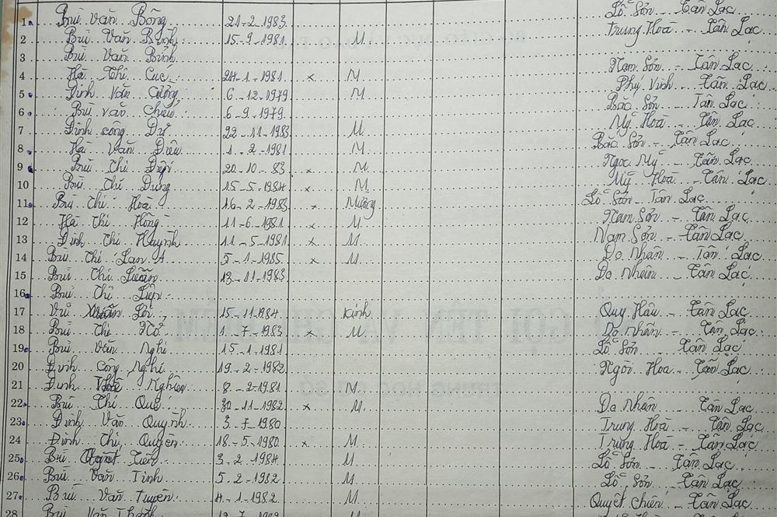 1 Bùi Văn Bông 21-2-1983 Lỗ Sơn - Tân Lạc
2 Bùi Văn Bình 15-9-1981 M Trung Hoà - Tân Lạc
3 Bùi Văn Bình
4 Hà Thị Cúc 24-1-1981 x M Nam Sơn - Tân Lạc
5 Đinh Văn Cường 6-12-1979 M Phú Vinh - Tân Lạc
6 Bùi Văn Chiểu 6-9-1979 Bắc Sơn - Tân Lạc
7 Đinh Công Dự 22-11-1983 M Mỹ Hoà - Tân Lạc
8 Hà Văn Diêu 1-2-1981 M Bắc Sơn - Tân Lạc
9 Bùi Thị Diệp 20-10-83 x M Ngọc Mỹ - Tân Lạc
10 Bùi Thị Dung 15-5-1984 x M Mỹ Hoà - Tân Lạc
11 Bùi Thị Hoà 16-2-1983 x Mường Lỗ Sơn - Tân Lạc
12 Hà Thị Hồng 11-6-1981 x M Nam Sơn - Tân Lạc
13 Đinh Thị Huỳnh 11-5-1981 x M Nam Sơn - Tân Lạc
14 Bùi Thị Lan A 5-1-1985 x M Do Nhân - Tân Lạc
15 Bùi Thị 13-11-1983 Do Nhân - Tân Lạc
16 Bùi Thị
17 Vũ Xuân Lợi 15-11-1984 Kinh Quy Hậu - Tân Lạc
18 Bùi Thị Nở 1-7-1983 x M Do Nhân - Tân Lạc
19 Bùi Văn Nghì 15-1-1981 Lỗ Sơn - Tân Lạc
20 Đinh Công Nghì 19-2-1982 Ngòi Hoa - Tân Lạc
21 Đinh Nghiên 8-2-1981 M
22 Bùi Thị Quê 30-11-1982 x M Do Nhân - Tân Lạc
23 Đinh Văn Quỳnh 3-7-1980 Trung Hoà - Tân Lạc
24 Đinh Thị Quyên 18-5-1980 x M Trung Hoà - Tân Lạc
25 Bùi Tiến 3-2-1984 M Lỗ Sơn - Tân Lạc
26 Bùi Văn Tính 5-2-1982 M Lỗ Sơn - Tân Lạc
27 Bùi Văn Tuyên 4-1-1982 M Quyết Chiến - Tân Lạc
28 Bùi Văn